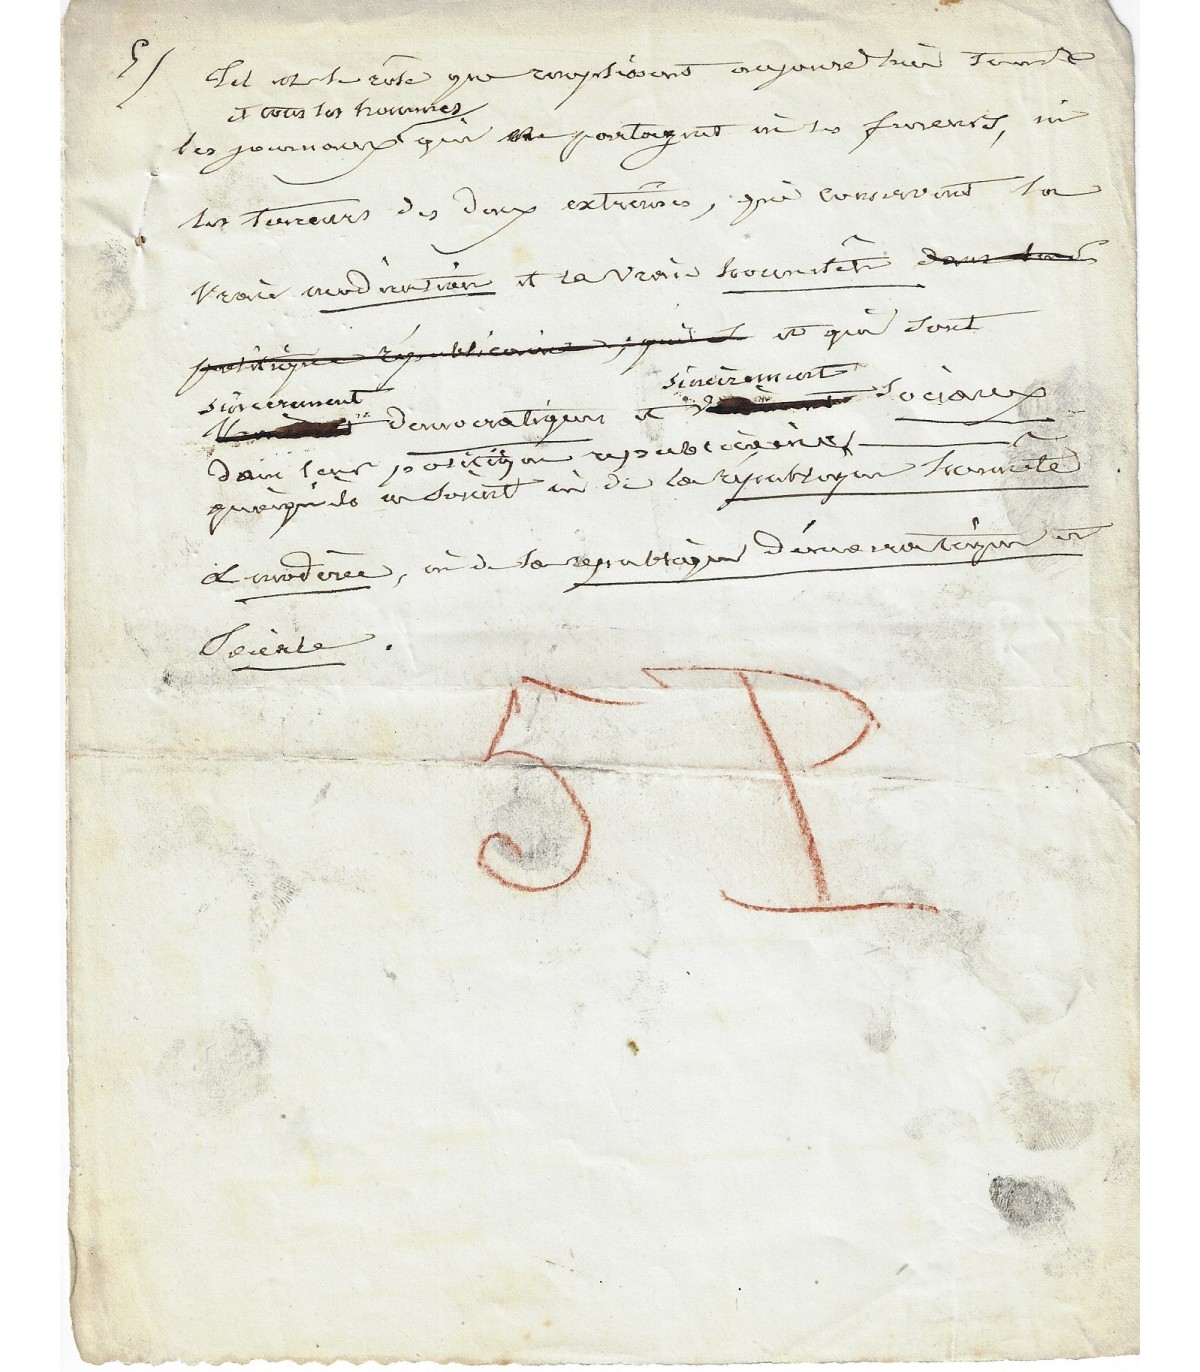 5/ Tel est le rôle que remplissent aujourd'hui tous
et tous les hommes
les journaux qui ne partagent ni les fureurs, ni
les terreurs des deux extrêmes, qui conservent la
vraie modération et la vraie honnêteté dans leur
politique républicaine, qui et qui sont
sincèrement sincèrement
démocratiques et sociaux
dans leur politique républicaine
quoiqu'ils ne soient ni de la république honnête
et modérée, ni de la république démocratique et
sociale.
5 P